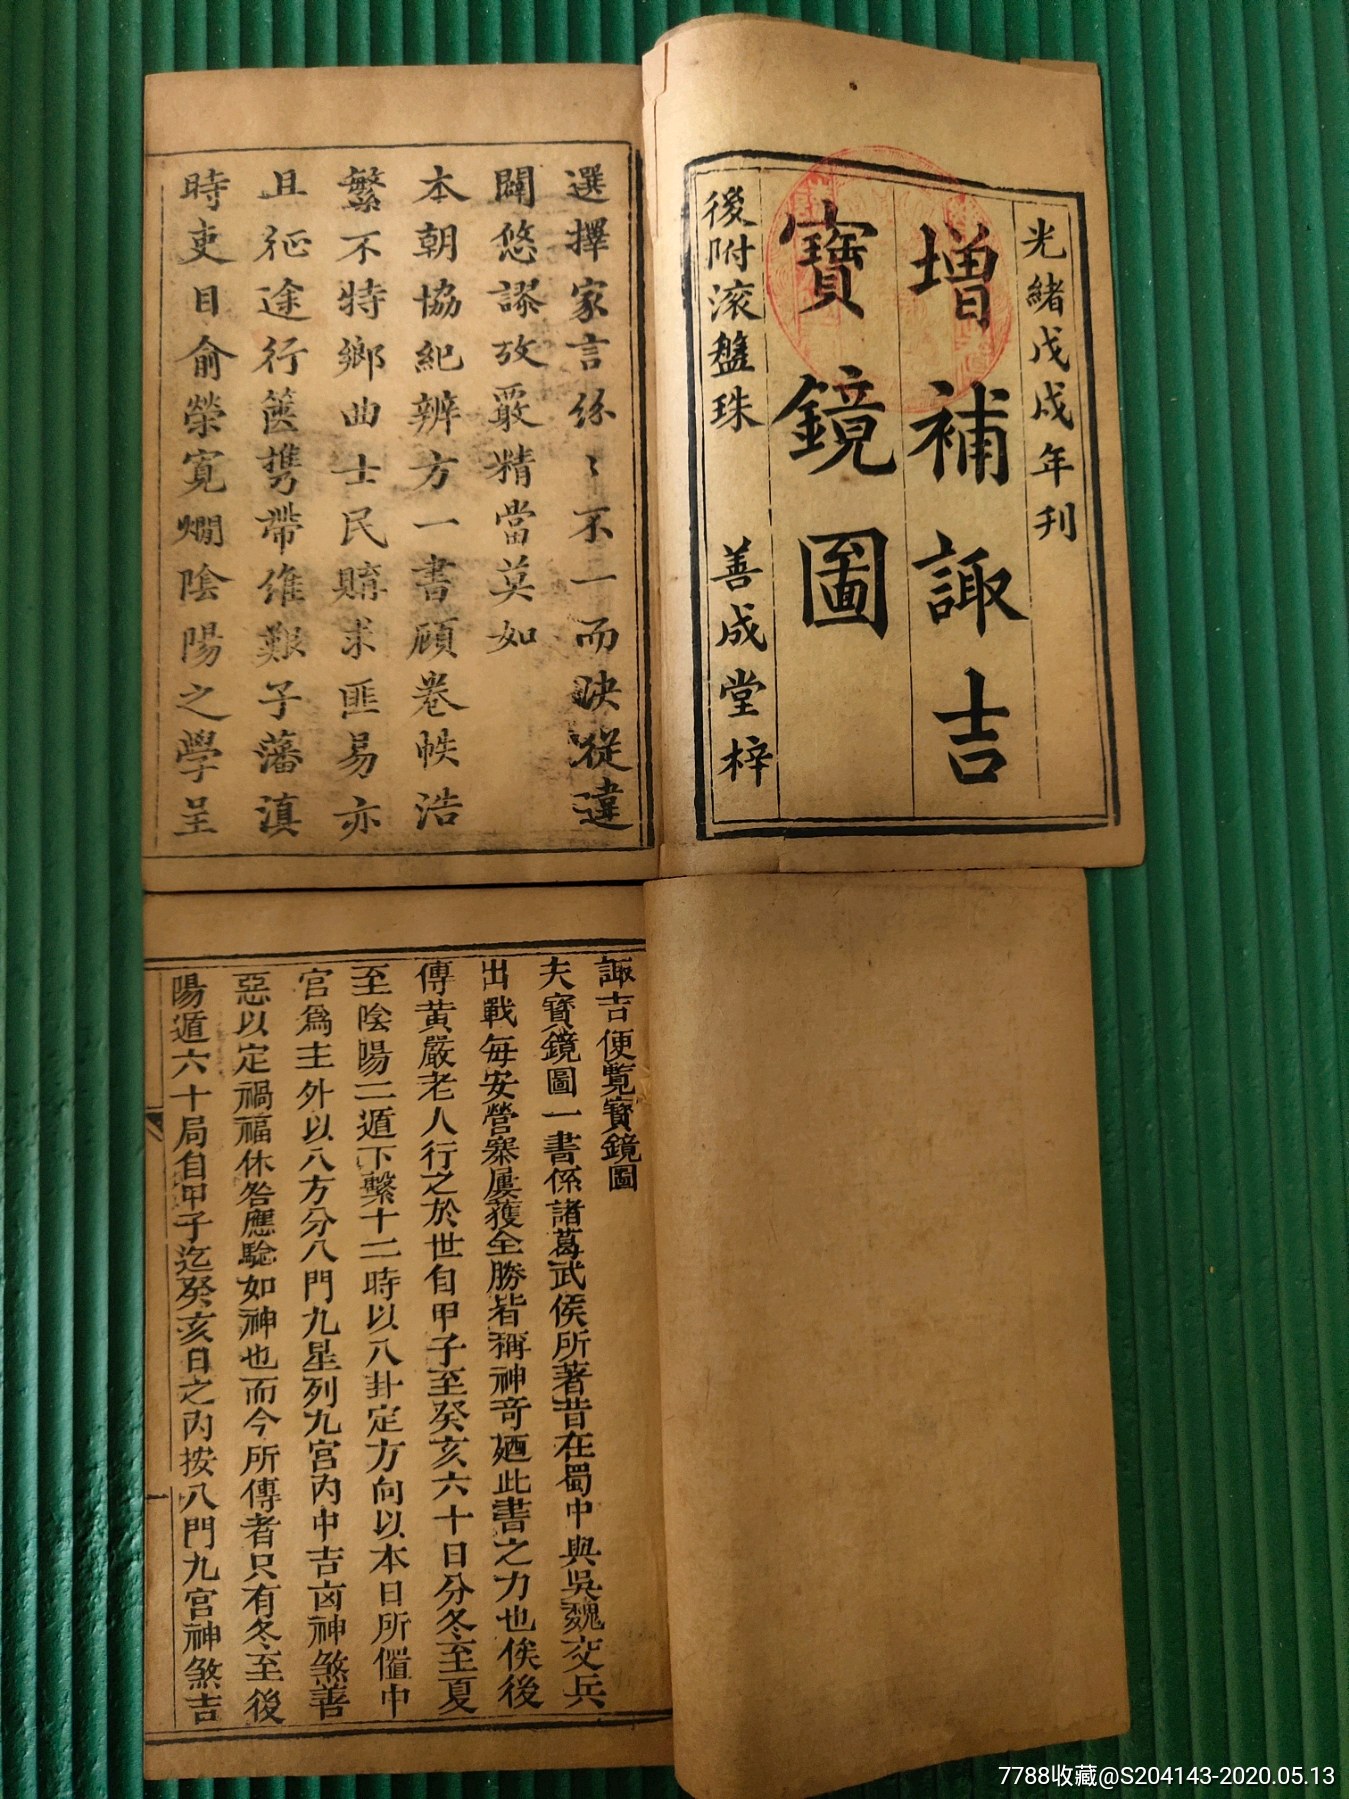 光緒戊戌年刊
增補諏吉
寶鏡圖
後附滚盤珠 善成堂梓
選擇家言紛〻不一而決從違
闢悠謬放嚴精當莫如
本朝協紀辨方一書顧卷帙浩
繁不特鄉曲士民購求匪易亦
且征途行篋携帶維艱予藩滇
時吏目俞榮寬嫻陰陽之學呈
諏吉便覽寶鏡圖
夫寶鏡圖一書係諸葛武侯所著昔在蜀中與吳魏交兵
出戰每安營寨屢獲全勝皆稱神奇廼此書之力也俟後
傳黄嚴老人行之於世自甲子至癸亥六十日分冬至夏
至陰陽二遁下繫十二時以八卦定方向以本日所値中
宫爲主外以八方分八門九星列九宫内中吉凶神煞善
惡以定禍福休咎應驗如神也而今所傳者只有冬至後
陽遁六十局自甲子迄癸亥日之内按八門九宫神煞吉
7788收藏@S204143-2020.05.13